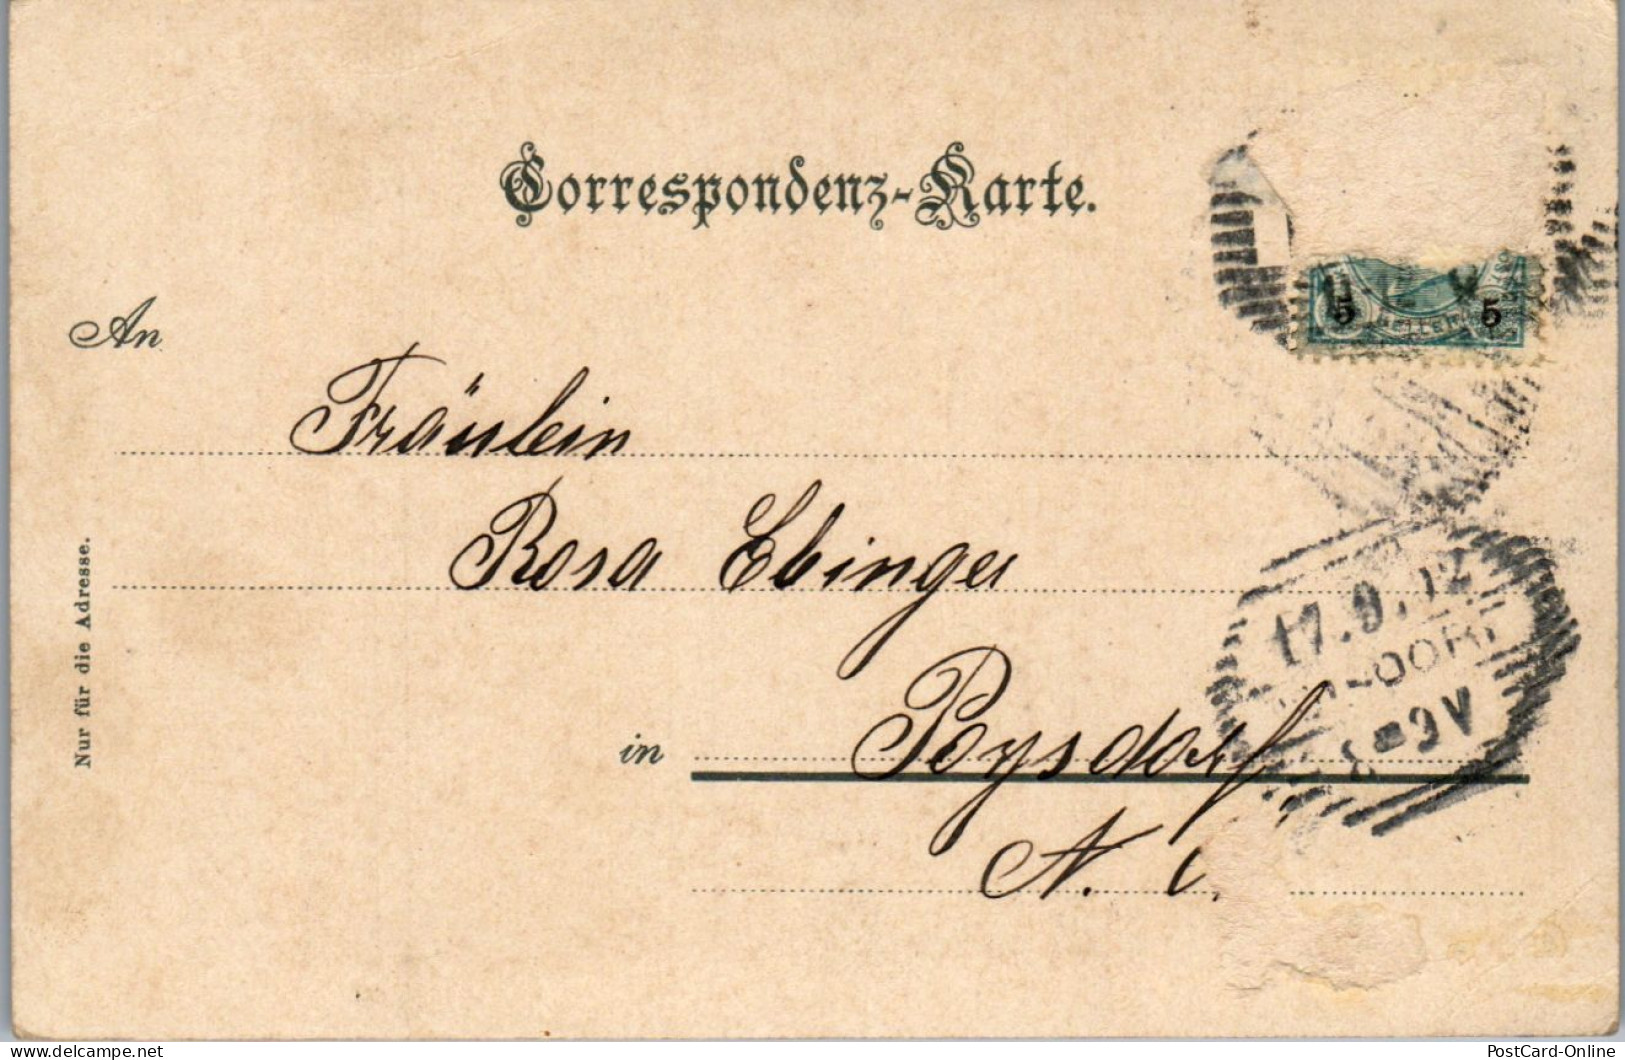 Correspondenz-Karte.
5 HELLER 5
An
Fräulein
Rosa Ebinger
17.9.02
in Poysdorf
N.
Nur für die Adresse.
delcampe.net
PostCard-Online